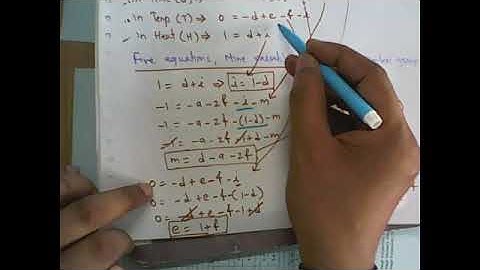 In Temp (T) ⇒ 0 = -d + e - f - i
In Heat (H) ⇒ 1 = d + i
Five equations, Nine
1 = d + i ⇒ i = 1-d
-1 = -a - 2f - i - m
-1 = -a - 2f - (1-d) - m
-1 = -a - 2f - 1 + d - m
m = d - a - 2f
0 = -d + e - f - i
0 = -d + e - f - (1-d)
0 = -d + e - f - 1 + d
e = 1+f